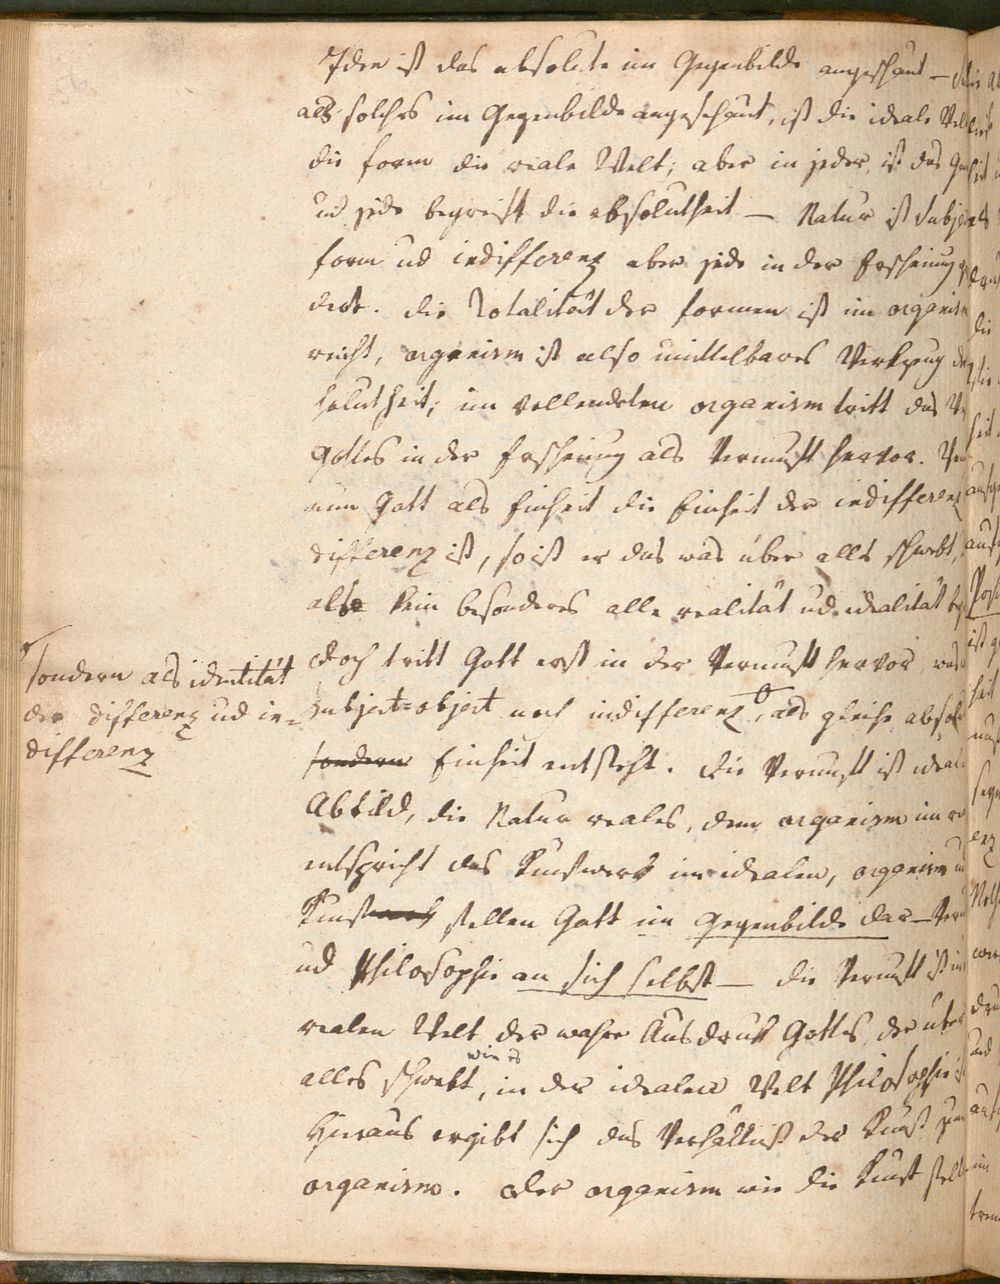 Idee ist das absolute im Gegenbilde angeschaut —
als solches im Gegenbilde angeschaut, ist die ideale Welt
die form die reale Welt; aber in jeder ist das
ud jede begreift die absolutheit — Natur ist Subject
form ud indifferenz aber jede in der Erscheinung
dert. die Totalität der formen ist im organism
reicht, organism ist also mittelbares Werkzeug der
solutheit; im vollendeten organism tritt das
Gottes in der Erscheinung als Vernunft hervor.
nun Gott als Einheit die Einheit der indifferenz
differenz ist, so ist er das was über alles schwebt,
als kein besonderes alle realität ud idealität
doch tritt Gott erst in der Vernunft hervor
sondern als identität
der differenz ud in-
differenz
Subject=object noch indifferenz, als gleiche absolute
sondern Einheit entsteht. die Vernunft ist ideales
Abbild, die Natur reales, dem organism im
entspricht das Kunstwerk im idealen, organism
Kunstwerk stellen Gott im Gegenbilde dar —
ud Philosophie an sich selbst — die Vernunft ist
realen Welt der wahre Ausdruk Gottes, der über
alles schwebt, wie es in der idealen Welt Philosophie
Hieraus ergibt sich das Verhältniß der Kunst zum
organismo. der organism wie die Kunst